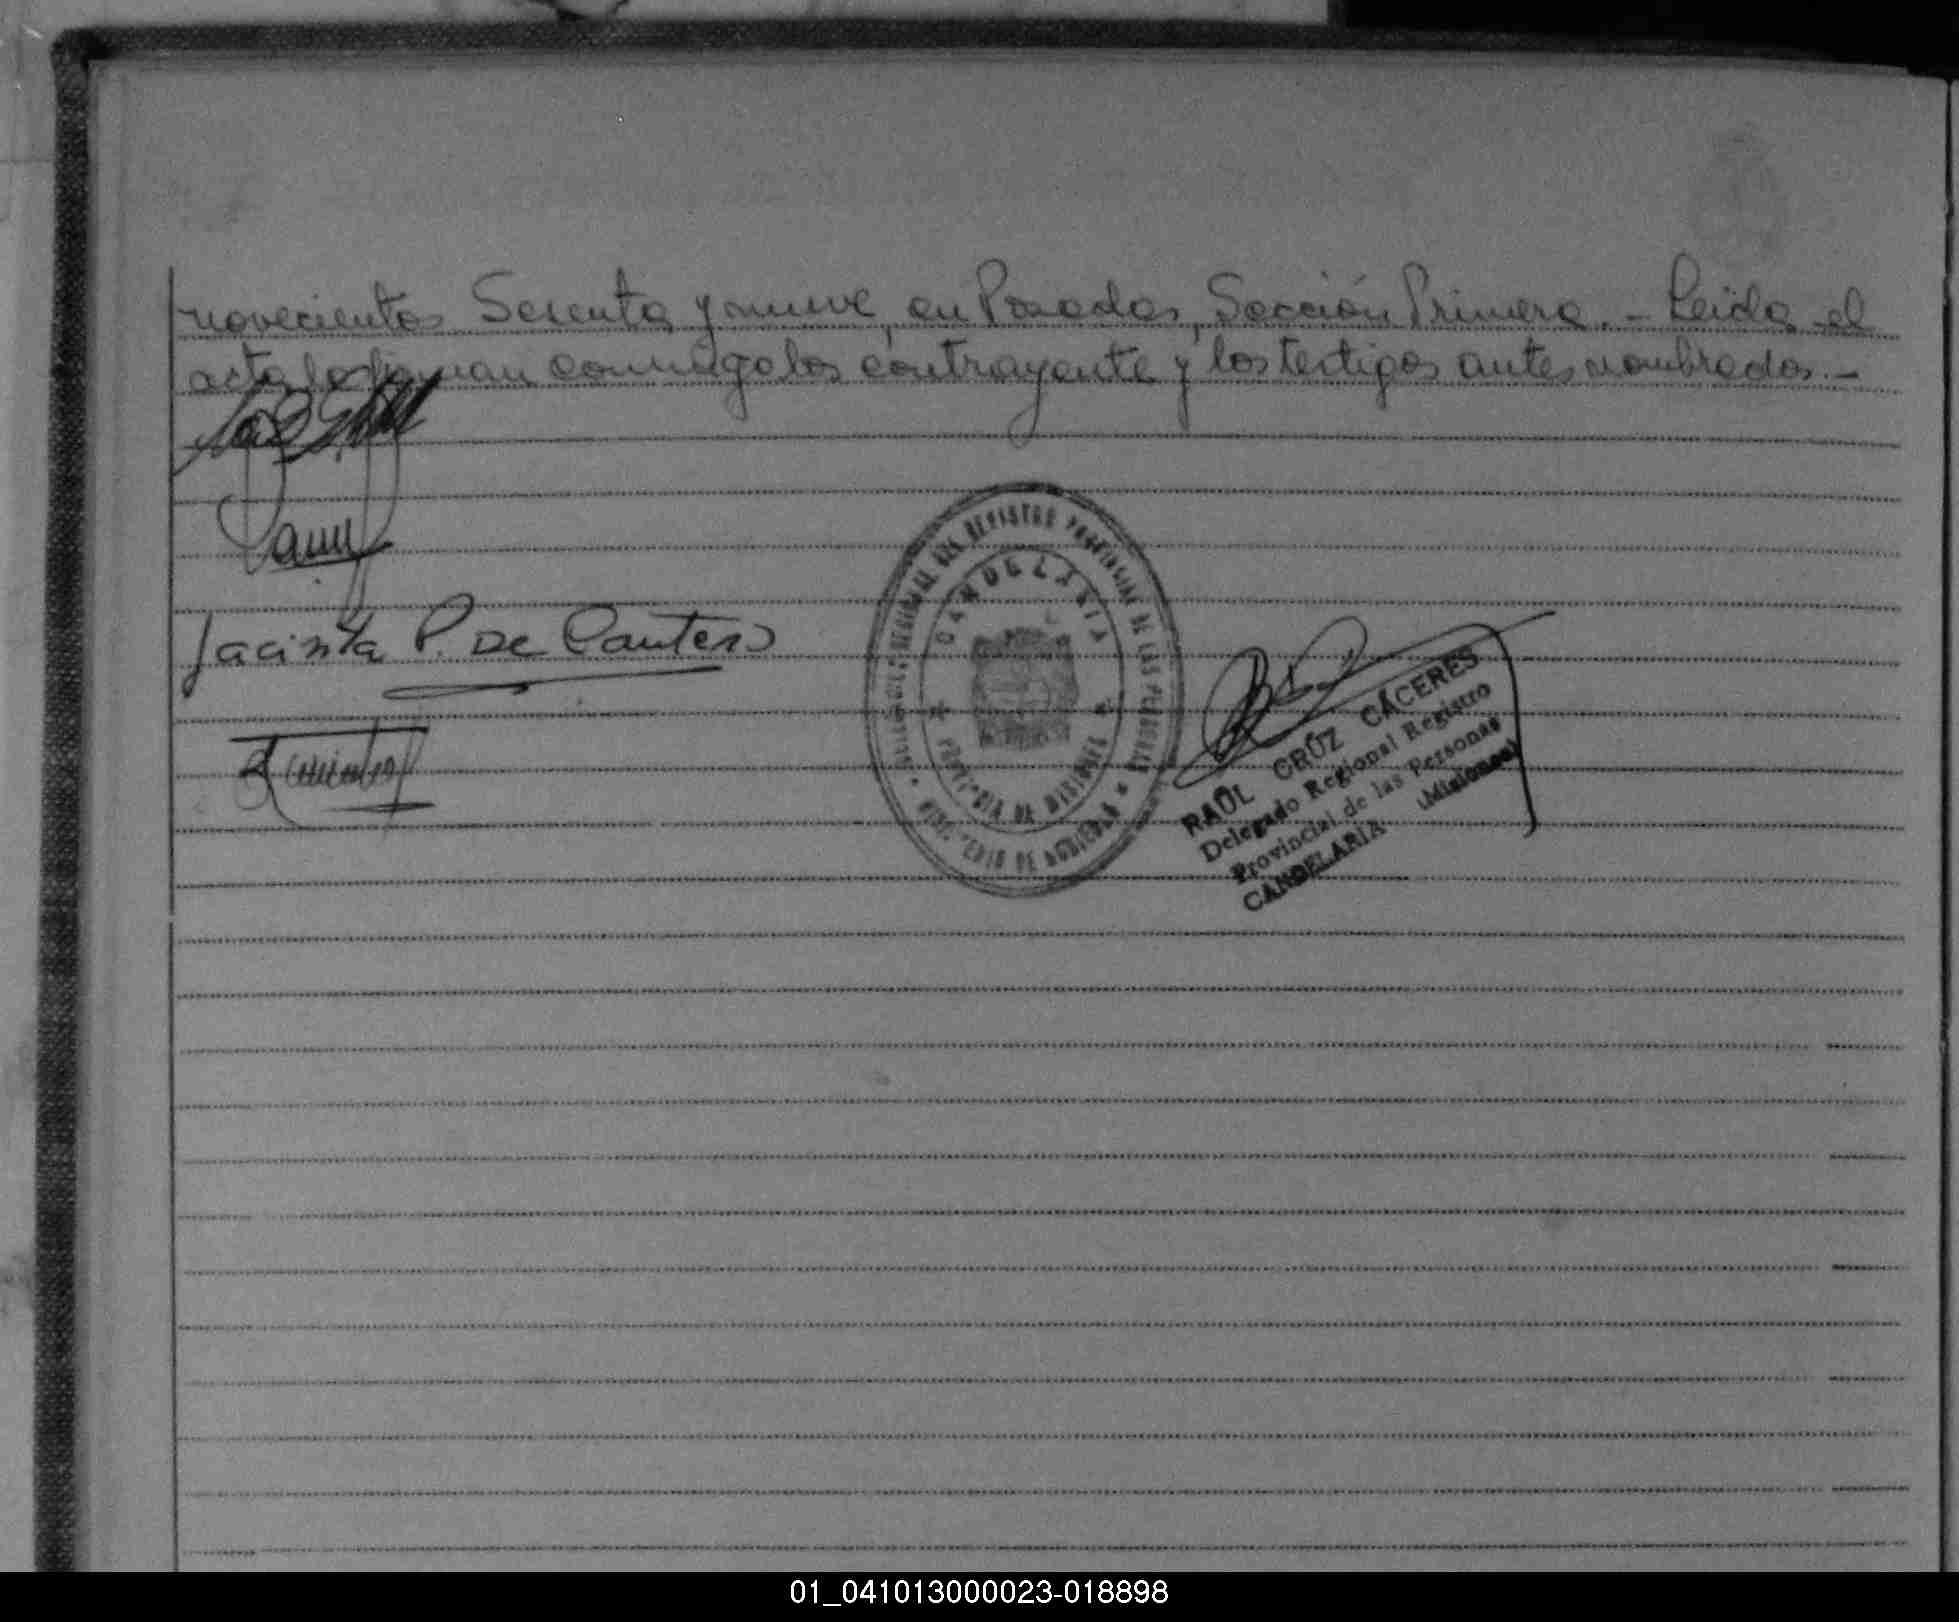 novecientos Sesenta y nueve, en Posadas, Sección Primera.- Leida el
acta la firman conmigo los contrayente y los testigos antes nombrados.-
Jacinta P. De Cantero
DELEGACION REGIONAL DEL REGISTRO PROVINCIAL DE LAS PERSONAS
CANDELARIA
PROVINCIA DE MISIONES
MINISTERIO DE GOBIERNO
RAÚL CRÚZ CÁCERES
Delegado Regional Registro
Provincial de las Personas
CANDELARIA (Misiones)
01_041013000023-018898